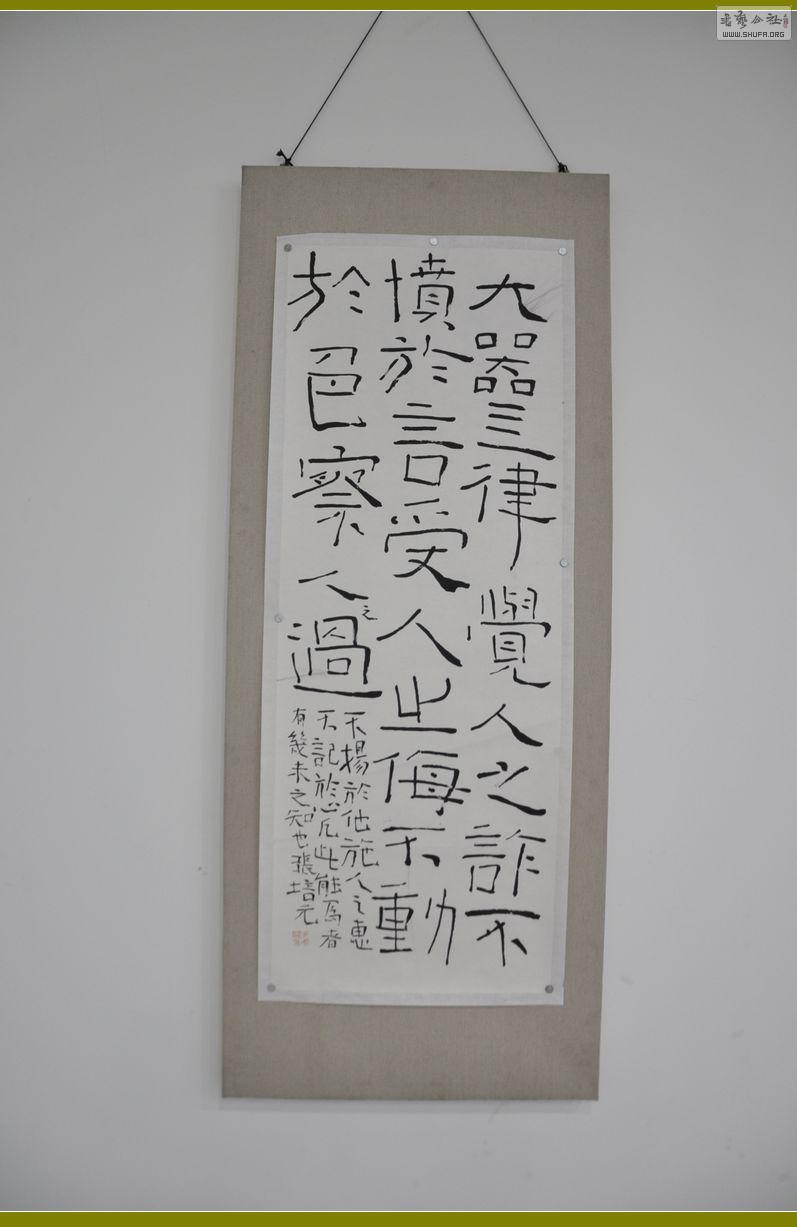 大器三律覺人之詐不
憤於言受人之侮不動
於色察人之過
不揚於他施人之惠
不記於心凡此能為者
有幾未之知也張培元
書藝公社
WWW.SHUFA.ORG